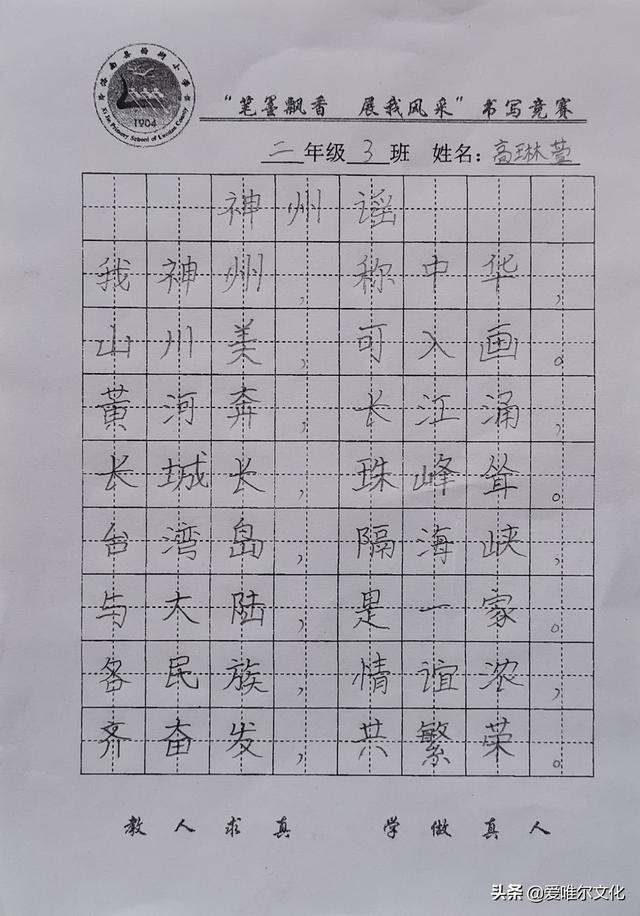 1904
"笔墨飘香 展我风采"书写竞赛
二年级3班 姓名：高琳萱
神州谣
我神州，称中华，
山川美，可入画。
黄河奔，长江涌，
长城长，珠峰耸。
台湾岛，隔海峡，
与大陆，是一家。
各民族，情谊浓，
齐奋发，共繁荣。
教人求真 学做真人
头条 @爱唯尔文化